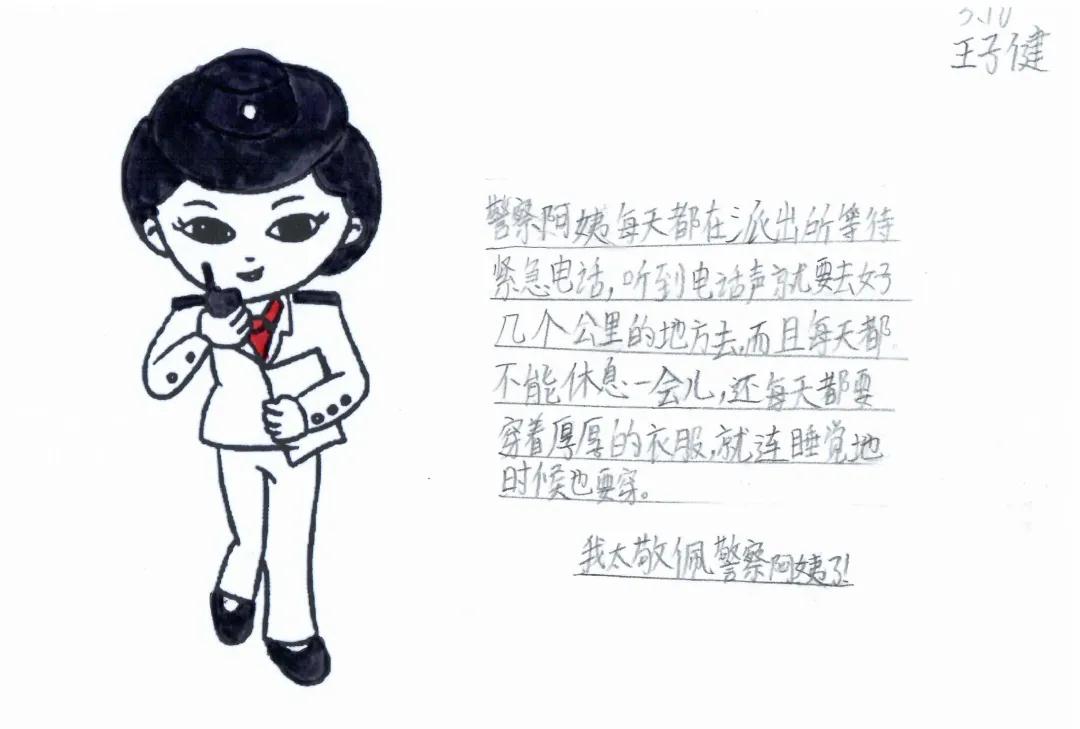 3.10
王子健
警察阿姨每天都在派出所等待
紧急电话,听到电话声就要去好
几个公里的地方去,而且每天都
不能休息一会儿,还每天都要
穿着厚厚的衣服,就连睡觉地
时候也要穿。
我太敬佩警察阿姨了!